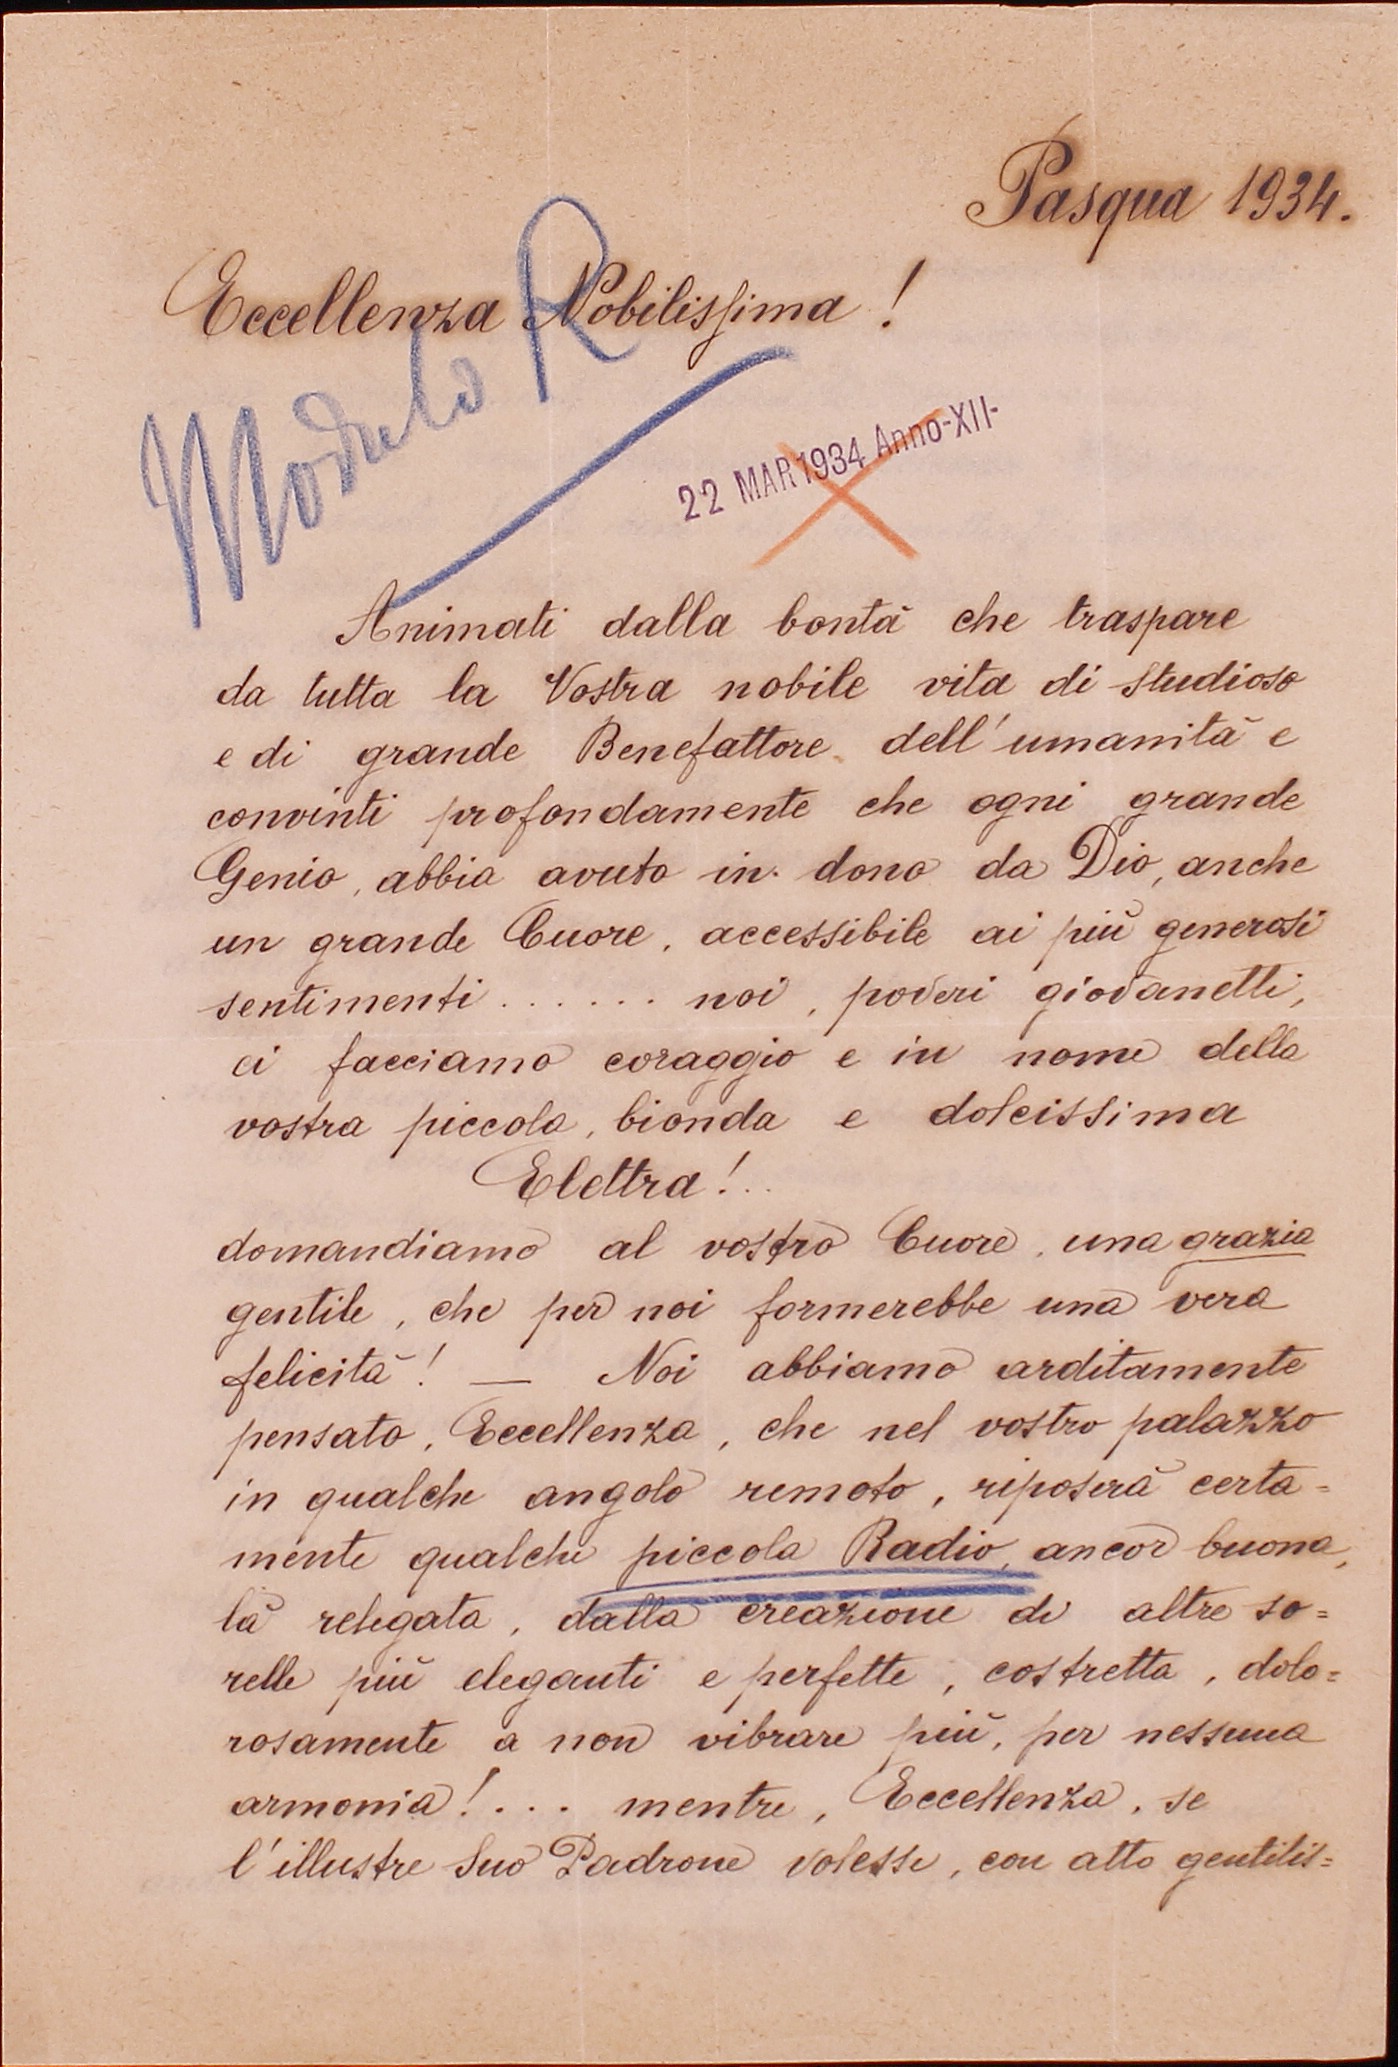 Pasqua 1934.
Eccellenza Nobilissima !
Modulo R
22 MAR 1934 Anno-XII-
Animati dalla bontà che traspare
da tutta la Vostra nobile vita di studioso
e di grande Benefattore dell'umanità e
convinti profondamente che ogni grande
Genio, abbia avuto in dono da Dio, anche
un grande Cuore, accessibile ai più generosi
sentimenti ...... noi, poveri giovanetti,
ci facciamo coraggio e in nome della
vostra piccola, bionda e dolcissima
Elettra !..
domandiamo al vostro Cuore, una grazia
gentile, che per noi formerebbe una vera
felicità ! — Noi abbiamo arditamente
pensato, Eccellenza, che nel vostro palazzo
in qualche angolo remoto, riposerà certa=
mente qualche piccola Radio, ancor buona,
là relegata, dalla creazione di altre so=
relle più eleganti e perfette, costretta, dolo=
rosamente a non vibrare più, per nessuna
armonia ! ... mentre, Eccellenza, se
l'illustre Suo Padrone volesse, con atto gentilis=